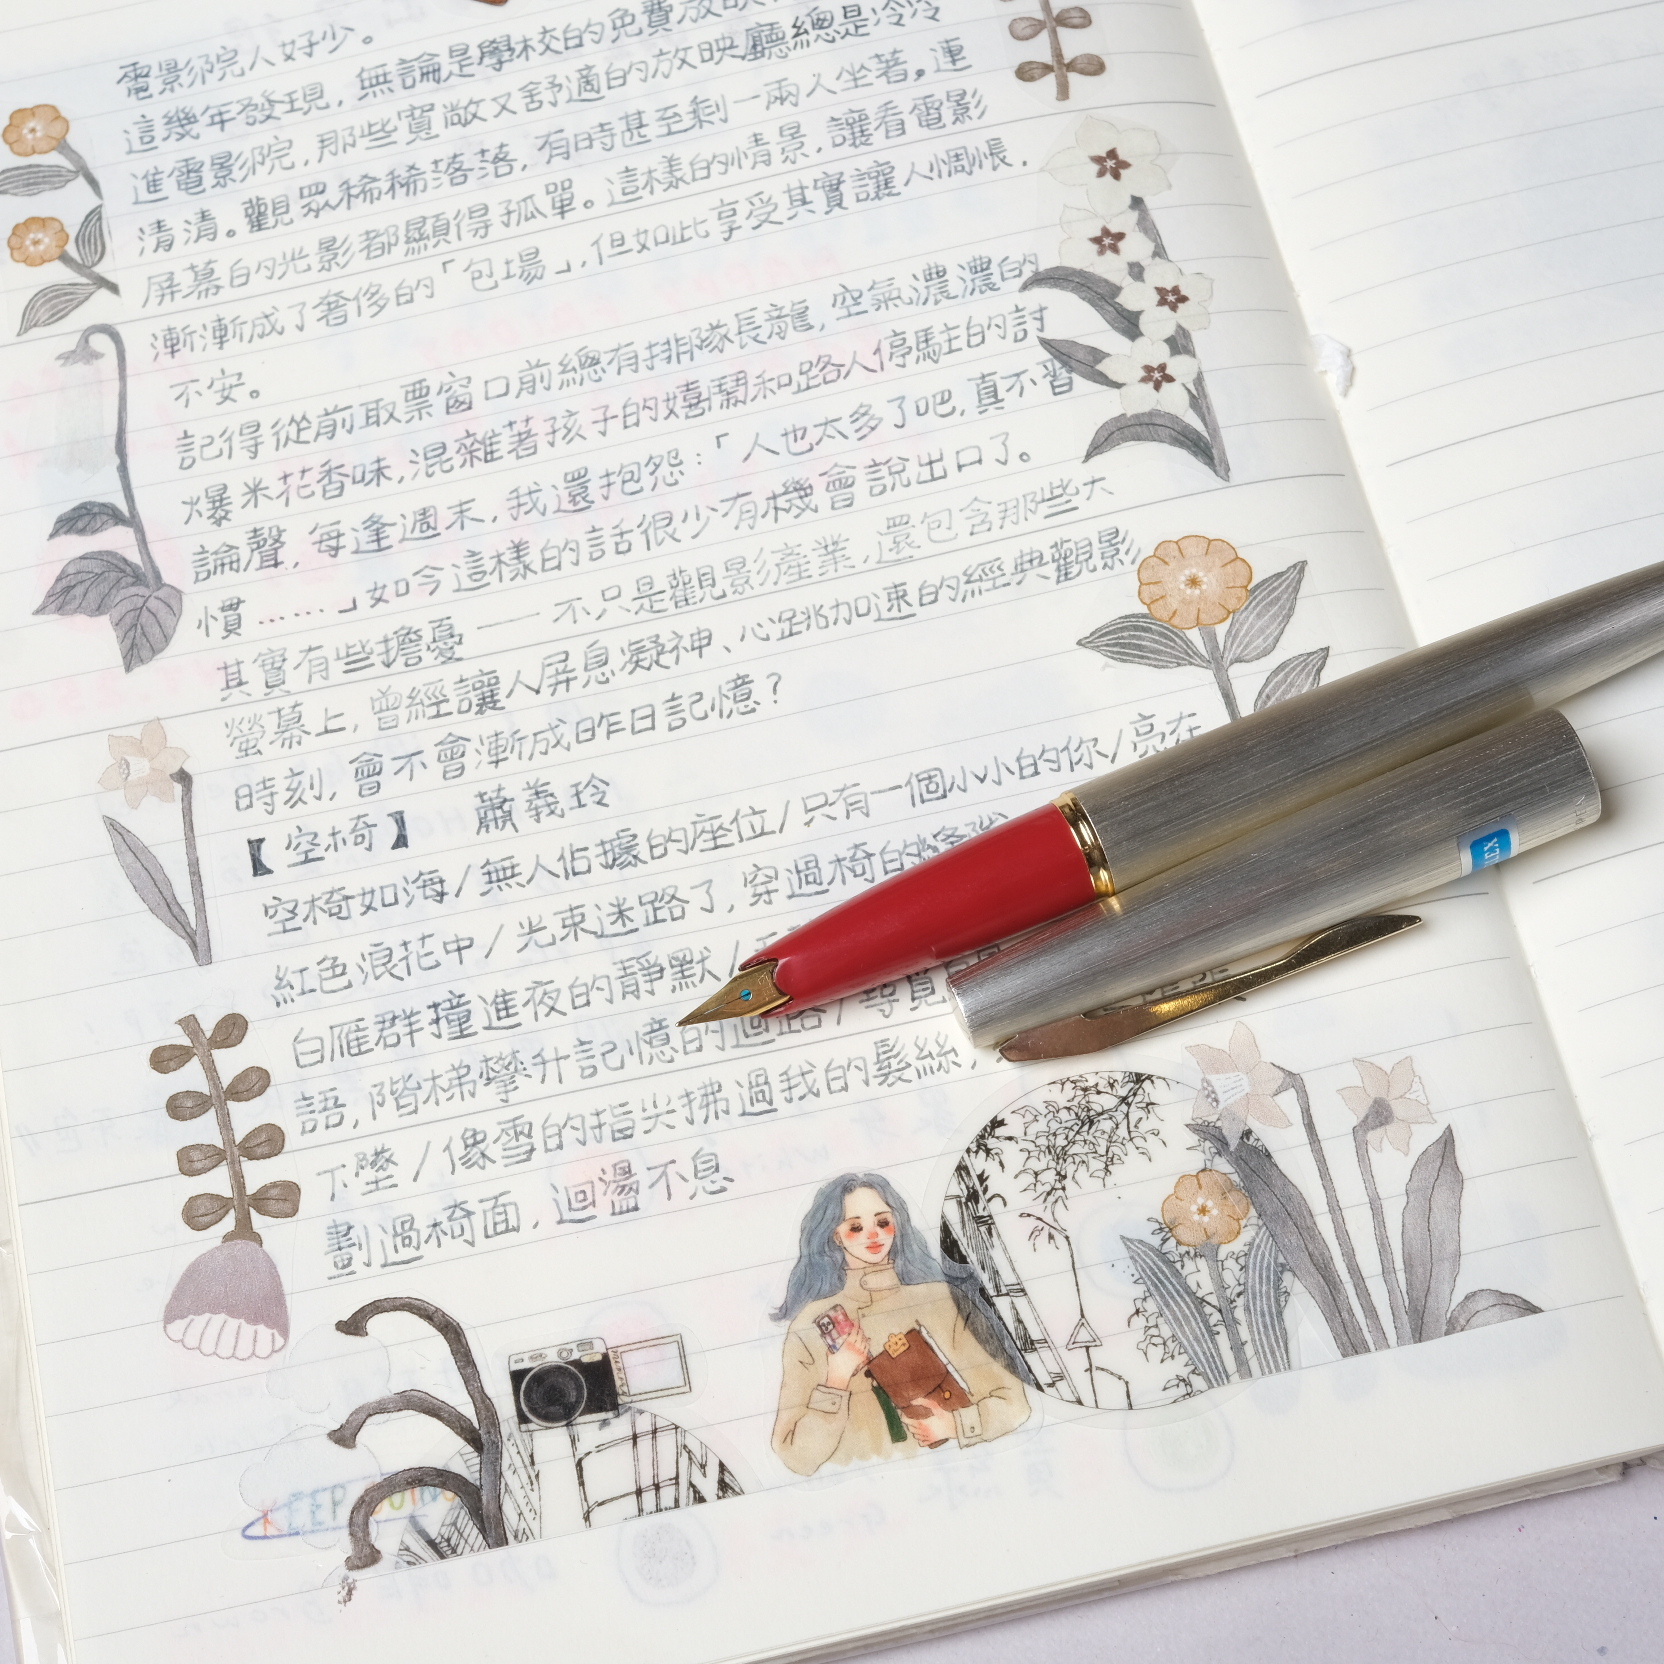 電影院人好少。
這幾年發現，無論是學校的免費放映
進電影院，那些寬敞又舒適的放映廳總是冷冷
清清。觀眾稀稀落落，有時甚至剩一兩人坐著。連
屏幕的光影都顯得孤單。這樣的情景，讓看電影
漸漸成了奢侈的「包場」，但如此享受其實讓人惆悵，
不安。
記得從前取票窗口前總有排隊長龍，空氣濃濃的
爆米花香味，混雜著孩子的嬉鬧和路人停駐的討
論聲，每逢週末，我還抱怨：「人也太多了吧，真不習
慣……」如今這樣的話很少有機會說出口了。
其實有些擔憂——不只是觀影產業，還包含那些大
螢幕上，曾經讓人屏息凝神、心跳加速的經典觀影
時刻，會不會漸成昨日記憶？
【空椅】 蕭義玲
空椅如海/無人佔據的座位/只有一個小小的你/亮在
紅色浪花中/光束迷路了，穿過椅的縫隙
白雁群撞進夜的靜默/
語，階梯攀升記憶的迴路/尋覓
下墜/像雪的指尖拂過我的髮絲，
劃過椅面，迴盪不息
KEEP GOING